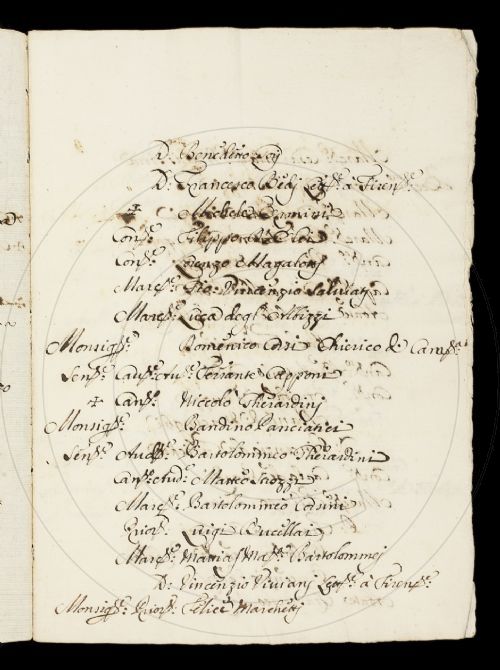 D. Benedetto
D. Francesco Redi a Firenze
✝ Michele Ermini
Con.^r Filippo
Con.^r Lorenzo Magalotti
March.^e Gio: Vincenzio Salviati
March.^e Luca degl' Albizzi
Monsig.^r Domenico Corsi Chierico di Cam.^ra
Sen.^r Ferrante Capponi
✝ Can.^co Niccolo Gherardinj
Monsig.^r Bandino Panciatici
Sen.^r Aud.^r Bartolommeo Gherardini
Matteo
March.^e Bartolommeo Corsini
Prior Luigi Rucellai
March.^e Mattias M.^a Bartolommej
D. Vincenzio Vivianj a Firenze
Monsig.^r Felice Marchetti